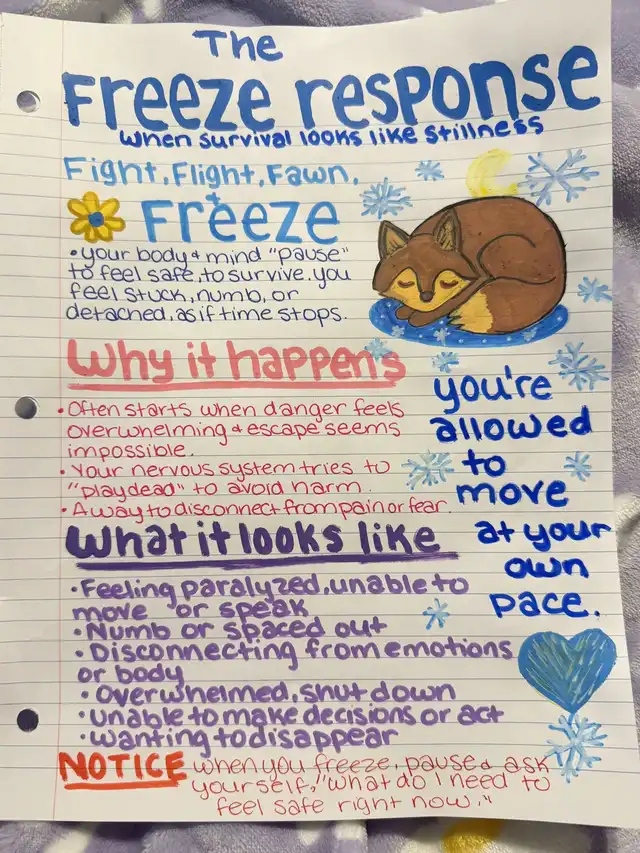 The
Freeze response
when survival looks like stillness
Fight, Flight, Fawn,
+ Freeze
• your body & mind "pause"
to feel safe, to survive. you
feel stuck, numb, or
detached, as if time stops.
Why it happens
• Often starts when danger feels
overwhelming & escape seems
impossible.
• Your nervous system tries to
"play dead" to avoid harm.
• A way to disconnect from pain or fear.
you're
allowed
to
move
at your
own
pace.
What it looks like
• Feeling paralyzed, unable to
move or speak
• Numb or spaced out
• Disconnecting from emotions
or body
• Overwhelmed, shut down
• unable to make decisions or act
• wanting to disappear
NOTICE when you freeze, pause & ask
yourself, "what do I need to
feel safe right now."